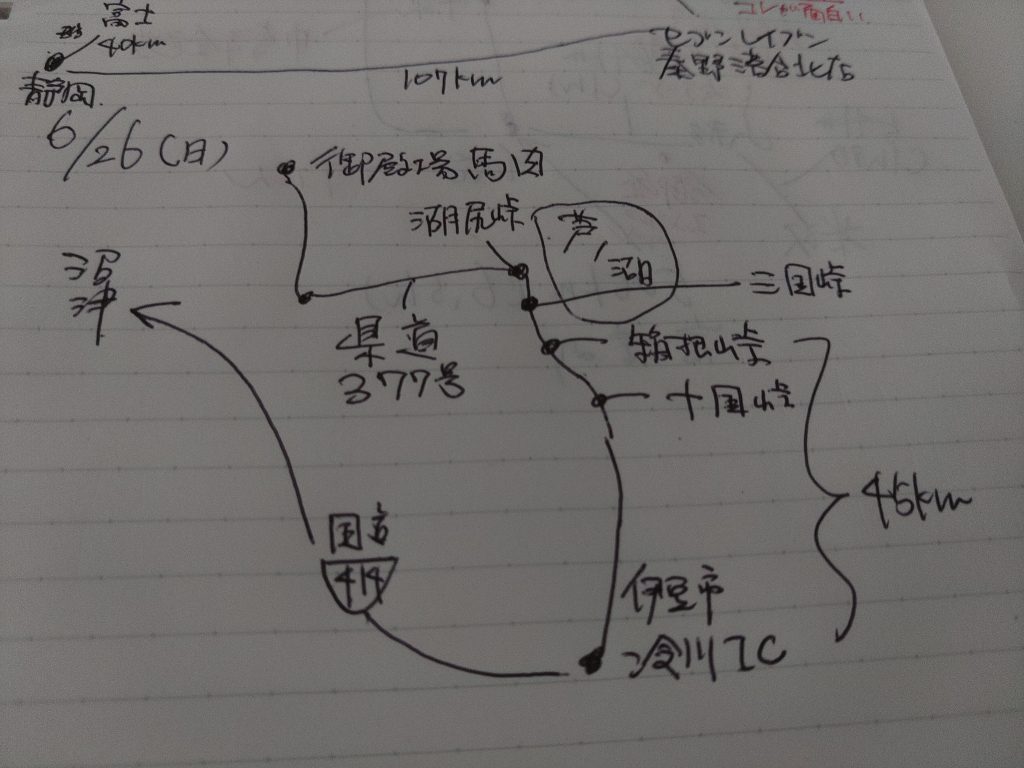 コレが面白い
富士
40km
静岡
107km
セブンイレブン
秦野渋谷北店
6/26(日)
御殿場馬図
湖尻峠
芦ノ湖
三国峠
沼津
県道
377号
箱根峠
十国峠
45km
国道
414
伊豆市
冷川IC